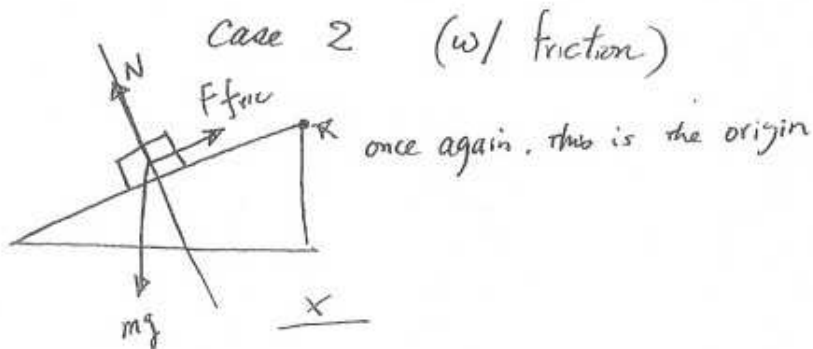 Case 2 (w/ friction)
N
F fric
once again, this is the origin
mg
x